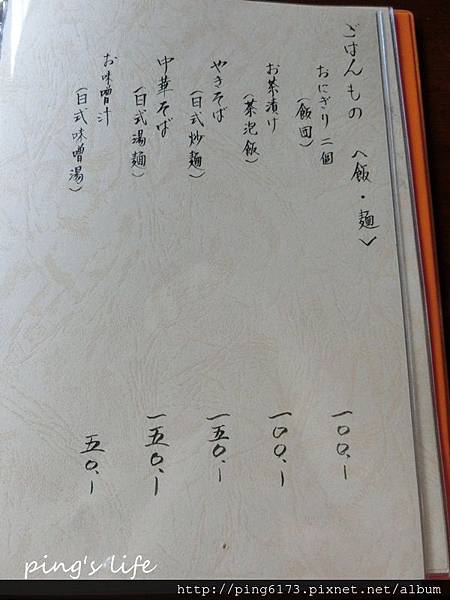 ごはんもの <飯・麺>
おにぎり二個
(飯団)
一〇〇.-
お茶漬け
(茶泡飯)
一〇〇.-
やきそば
(日式炒麺)
一五〇.-
中華そば
(日式湯麺)
一五〇.-
お味噌汁
(日式味噌湯)
五〇.-
ping's life
http://ping6173.pixnet.net/album